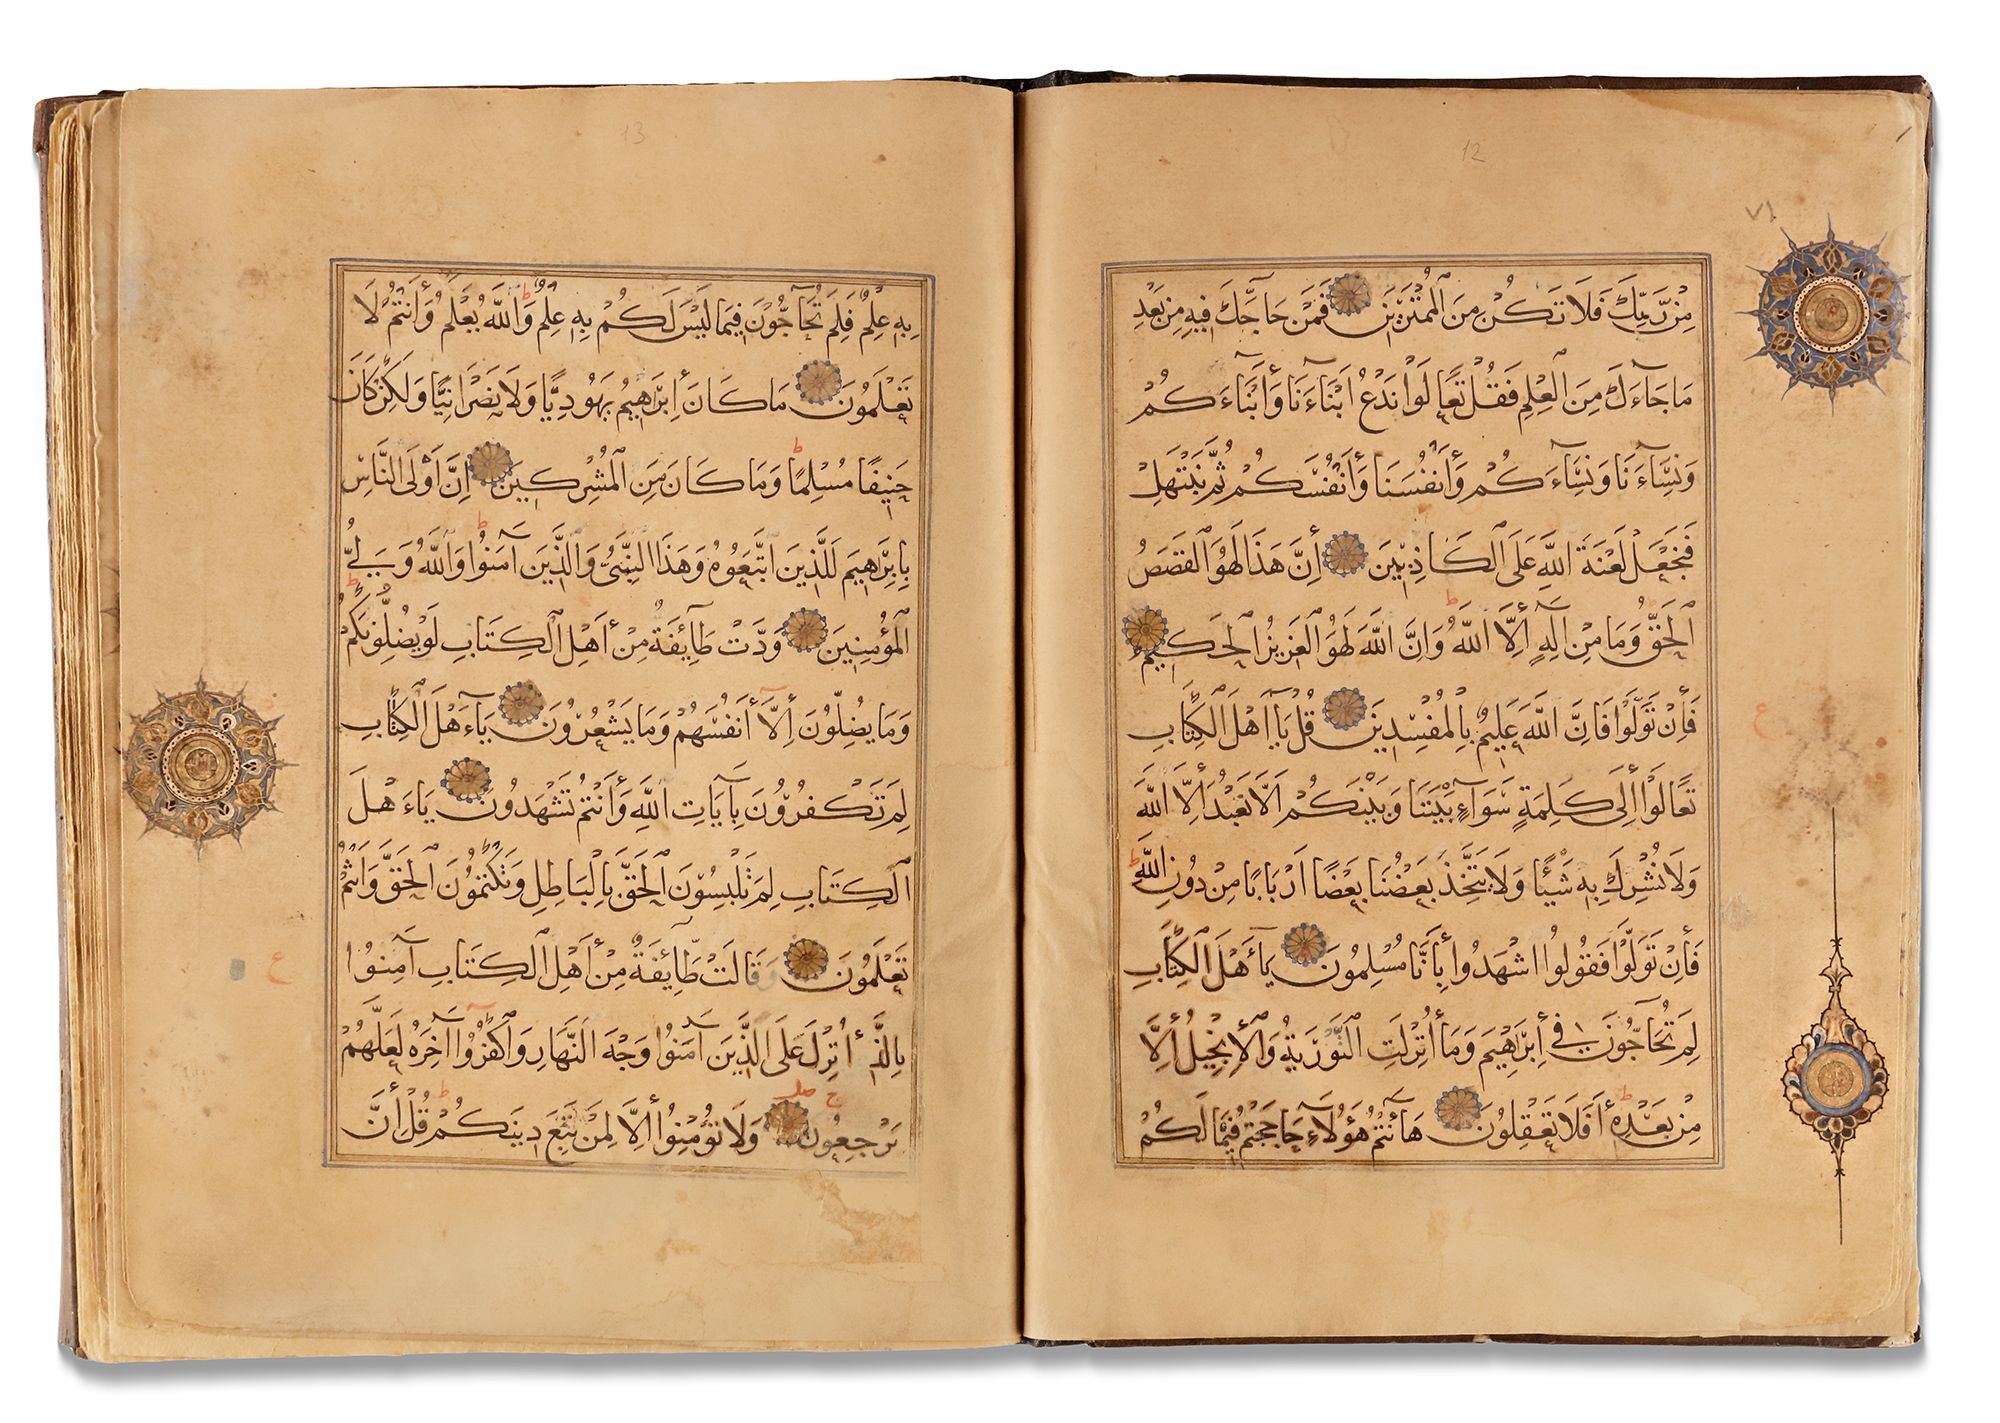 12
٧١
مِنْ رَبِّكَ فَلَا تَكُنْ مِنَ الْمُمْتَرِينَ فَمَنْ حَاجَّكَ فِيهِ مِنْ بَعْدِ
مَا جَآءَكَ مِنَ الْعِلْمِ فَقُلْ تَعَالَوْا نَدْعُ اَبْنَآءَنَا وَأَبْنَآءَكُمْ
وَنِسَآءَنَا وَنِسَآءَكُمْ وَأَنْفُسَنَا وَأَنْفُسَكُمْ ثُمَّ نَبْتَهِلْ
فَنَجْعَلْ لَعْنَةَ اللَّهِ عَلَى الْكَاذِبِينَ أِنَّ هَذَا لَهُوَ الْقَصَصُ
الْحَقُّ وَمَا مِنْ اِلَهٍ أِلَّا اللَّهُ وَاِنَّ اللَّهَ لَهُوَ الْعَزِيزُ الْحَكِيمُ
فَأِنْ تَوَلَّوْا فَاِنَّ اللَّهَ عَلِيمٌ بِالْمُفْسِدِينَ قُلْ يَآ اَهْلَ الْكِتَابِ
تَعَالَوْا أِلَى كَلِمَةٍ سَوَآءٍ بَيْنَنَا وَبَيْنَكُمْ اَلَّا نَعْبُدَ أِلَّا اللَّهَ
وَلَا نُشْرِكَ بِهِ شَيْئًا وَلَا يَتَّخِذَ بَعْضُنَا بَعْضًا اَرْبَابًا مِنْ دُونِ اللَّهِ ط
فَأِنْ تَوَلَّوْا فَقُولُوا اشْهَدُوا بِأَنَّا مُسْلِمُونَ يَآءَهْلَ الْكِتَابِ
لِمَ تُحَآجُّونَ فِي أِبْرَهِيمَ وَمَآ أُنْزِلَتِ التَّوْرَيةُ وَالْأِنْجِيلُ أِلَّا
مِنْ بَعْدِهِ ط أَفَلَا تَعْقِلُونَ هَآ أَنْتُمْ هَؤُلَآءِ حَاجَجْتُمْ فِيمَا لَكُمْ
ع
13
بِهِ عِلْمٌ فَلِمَ تُحَآجُّونَ فِيمَا لَيْسَ لَكُمْ بِهِ عِلْمٌ ط وَاللَّهُ يَعْلَمُ وَأَنْتُمْ لَا
تَعْلَمُونَ مَا كَانَ أِبْرَهِيمُ يَهُودِيًّا وَلَا نَصْرَانِيًّا وَلَكِنْ كَانَ
حَنِيفًا مُسْلِمًا ط وَمَا كَانَ مِنَ الْمُشْرِكِينَ اِنَّ اَوْلَى النَّاسِ
بِاِبْرَهِيمَ لَلَّذِينَ اتَّبَعُوهُ وَهَذَا النَّبِيُّ وَالَّذِينَ آمَنُوا ط وَاللَّهُ وَلِيُّ
الْمُؤْمِنِينَ وَدَّتْ طَآئِفَةٌ مِنْ أَهْلِ الْكِتَابِ لَوْ يُضِلُّونَكُمْ ط
وَمَا يُضِلُّونَ أِلَّآ أَنْفُسَهُمْ وَمَا يَشْعُرُونَ يَآءَهْلَ الْكِتَابِ
لِمَ تَكْفُرُونَ بِآيَاتِ اللَّهِ وَأَنْتُمْ تَشْهَدُونَ يَآءَهْلَ
الْكِتَابِ لِمَ تَلْبِسُونَ الْحَقَّ بِالْبَاطِلِ وَتَكْتُمُونَ الْحَقَّ وَاَنْتُمْ
تَعْلَمُونَ وَقَالَتْ طَآئِفَةٌ مِنْ أَهْلِ الْكِتَابِ آمِنُوا
بِالَّذِي أُنْزِلَ عَلَى الَّذِينَ آمَنُوا وَجْهَ النَّهَارِ وَاكْفُرُوا آخِرَهُ لَعَلَّهُمْ
يَرْجِعُونَ ج صلے وَلَا تُؤْمِنُوا أِلَّا لِمَنْ تَبِعَ دِينَكُمْ ط قُلْ أِنَّ
ع